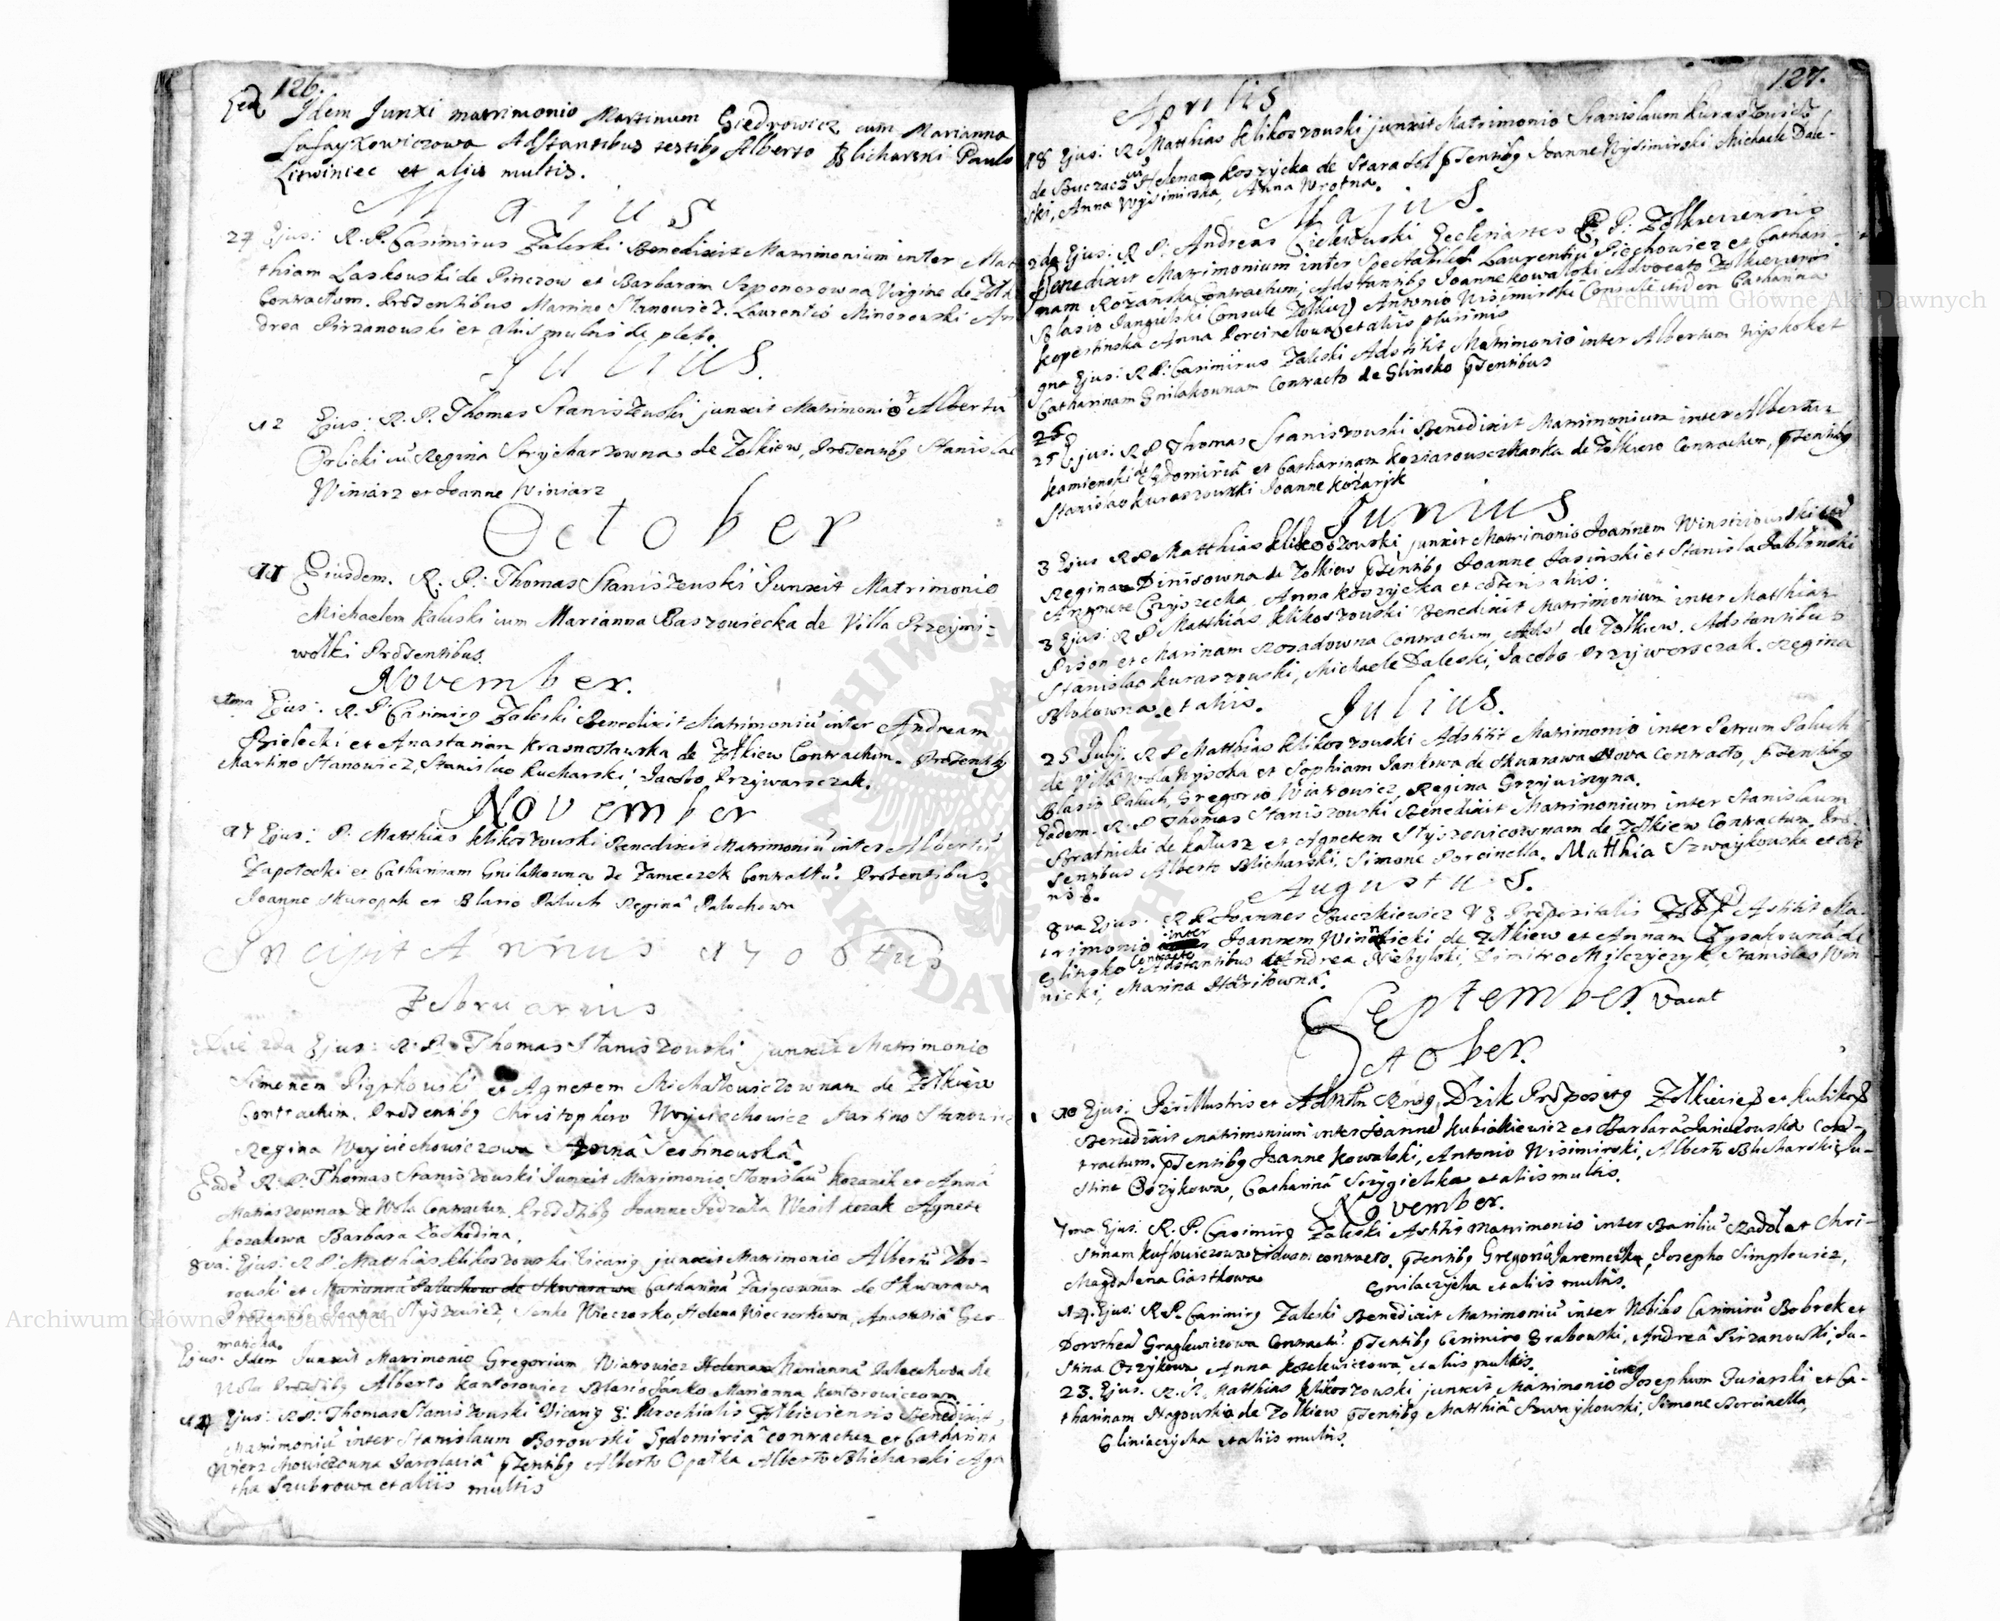 126.
Eod Idem Junxi matrimonio Martinum Giedrowicz cum Marianna
Safaykowiczowa Adstantibus testibg Alberto Blicharski Paulo
Litwiniec et aliis multis.
Maius
27 Ejus: R. P. Casimirus Zaleski Benedixit Matrimonium inter Mat
thiam Laskouski de Pinczow et Barbaram Szponorowna Virgine de Zółk
Contractum. Presentibus Martino Stanowicz. Laurentio Minorouski An
drea Pirzanouski et aliis multis de plebe.
Julius.
12 Ejus: R. P. Thomas Staniszeuski junxit Matrimonio Albertu
Orlicki cu Regina Strycharzowna de Zolkiew, Presentibg Stanislao
Winiarz et Joanne Winiarz
October
11 Ejusdem. R. P.: Thomas Staniszeuski Junxit Matrimonio
Michaelem Kaluski cum Marianna Baszowiecka de Villa Przeymi=
wolki Presentibus.
November.
Ejus: R. P. Casimirg Zaleski Benedixit Matrimoniu inter Andream
Bielecki et Anastasiam Krasnostawska de Zółkiew Contractum. Presentibg
Martino Stanowicz, Stanislao Kucharski, Jacobo Przywarszczak.
November
17 Ejus: P. Matthias Klikoszouski Benedixit Matrimoniu inter Albertu
Zapotocki et Catharinam Gnilakowna de Zameczek Contractu. Presentibus.
Joanne Skuropak et Blasio Paluch Regina Paluchowa
Incipit Annus 1706tus
Februarius
Die 2da Ejus: R. P. Thomas Staniszouski junxit Matrimonio
Simonem Pigtkouski et Agnetem Michałowiczownam de Zółkiew
Contractum. Presentibg Christophero Woyciechowicz Martino Stanowicz
Regina Woyciechowiczowa Anna Serbinouska.
Eade R. P. Thomas Staniszouski Junxit Matrimonio Stanislau Kozanek et Anna
Matiaszownam de Wola Contractum. Joanne Wasil Kozak Agnete
Kozakowa Barbara Zachodina.
8va: Ejus: R P. Matthias Klikoszouski Vicarig junxit Matrimonio Albertu Wo-
rouski et Marianna Paluchow de Skwarawa Catharina Zaigcownam de Skwarawa
Presentibg Joanne Styszowicz, Senko Wieczorko, Helena Wieczorkowa, Anastasia Ger-
mancka.
Ejus: Idem Junxit Matrimonio Gregorium Wiatrowicz Helenam Marianna
Wola Presentibg Alberto Kantorowicz Blasio Janko Marianna Kantorowiczowa
14 Ejus: R P: Thomas Staniszouski Vicarig E: Parochialis Zółkieviensis Benedixit
Matrimoniu inter Stanislaum Borowski Sędomiria contractum et Catharina
Wierzchowiczouna Jaroslavia Presentibg Alberto Opałka Alberto Blicharski Aga
tha Szubrowa et aliis multis
127.
Aprilis
18 Ejus: R Matthias Klikoszouski junxit Matrimonio Stanislaum Kuraszouski
de Buczacz cu Helenam Koszycka de Starasol Presentibg Joanne Wysimirski Michaele Dale-
ski, Anna Wysimirska, Anna Wrotna.
Majus.
2da Ejus: R P: Andreas Cielewuski Ecclesiastes E. P. Zółkieviensis
Benedixit Matrimonium inter Spectabiles Laurentiu Piechowicz et Cathari-
nam Rożanska Contractum, Adstantibg Joanne Kowalski Advocato Zółkieviensi
Blasio Jangulski Consule Zółkiew Antonio Wisimirski Consule itidem Catharina
Kopestinska Anna Porcinelowa et aliis plurimis
9na Ejus: R P: Casimirus Zaleski Adstitit Matrimonio inter Albertum Wysko et
Catharinam Gnilakownam Contracto de Glinsko Presentibus
26
25 Ejus: R P Thomas Staniszouski Benedixit Matrimonium inter Albertum
Kamienski de Sędomiria et Catharinam Kosiarouszczanka de Zółkiew Contractum, Presentibg
Stanislao Kuraszouski Joanne Kozaryk
Junius
3 Ejus R P Matthias Klikoszouski junxit Matrimonio Joannem cum
Regina Dinisowna de Zolkiew Presentibg Joanne Jasinski et Stanisla Jabłonski
Agnete Czyszecka, Anna Koszycka et ceteris aliis.
3 Ejus: R P Matthias Klikoszouski Benedixit Matrimonium inter Matthiam
Pison et Marinam Rosadowna Contractum, de Zółkiew. Adstantibus
Stanislao Kuraszouski, Michaele Daleski, Jacobo Przyworszczak. Regina
Blokowna et aliis.
Julius.
25 July. R P Matthias Klikoszouski Adstitit Matrimonio inter Petrum Paluch
de Villa Wola Wysocka et Sophiam Jankowa de Skwarawa Nova Contracto, Presentibg
Blasio Paluch, Gregorio Wiatrowicz, Regina Grzywiszyna.
Eodem. R. P Thomas Staniszouski Benedixit Matrimonium inter Stanislaum
Bratnicki de Kałusz et Agnetem Styszowiczownam de Zółkiew Contractum. Pre-
sentibus Alberto Blicharski, Simone Porcinella. Matthia Szwaykowska et
Augustus.
8va Ejus: R P Joannes Buczkiewicz Prepositalis Astitit Ma-
trimonio inter Joannem Winnicki de Zółkiew et Annam Czysakowna de
Glinsko Contracto Adstantibus Andrea Niebylski, Dimitro Mylczyczyk, Stanislao Win
nicki, Marina Harikowna.
September. Vacat
October.
10 Ejus: Perillustris et Admdn Rndg Dzik Prepositg Zółkievies et Kulikos
Benedixit Matrimonium inter Joanne Kubialkiewicz et Barbara Janiszouska Con-
tractum. Presentibg Joanne Kowalski, Antonio Wisimirski, Alberto Blicharski Ju-
stina Ozykowa, Catharina Strzygielska et aliis multis.
November.
7ma Ejus: R. P. Casimirg Zaleski Astitit Matrimonio inter Basiliu Radol et Chri-
stinam Kuflowiczowa viduam contracto. Presentibg Gregorio Jaremecka, Josepho Simplowicz,
Magdalena Ciastkowa Gnilaczycha et aliis multis.
14. Ejus: R. P. Casimirg Zaleski Benedixit Matrimoniu inter Nobiles Casimiru Bobrek et
Dorothea Graglewiczowa Contractu. Presentibg Casimiro Grabouski, Andrea Pirzanouski, Ju-
stina Ozykowa Anna Kozlewiczowa et aliis multis.
23. Ejus. R. P. Matthias Klikoszouski junxit Matrimonio inter Josephum Dusarski et Ca-
tharinam Nagowska de Zolkiew Presentibg Matthia Szwaykouski, Simone Porcinella,
Gliniaczycha et aliis multis.
Archiwum Główne Akt Dawnych
Archiwum Główne Akt Dawnych
ARCHIWUM GŁÓWNE AKT DAWNYCH